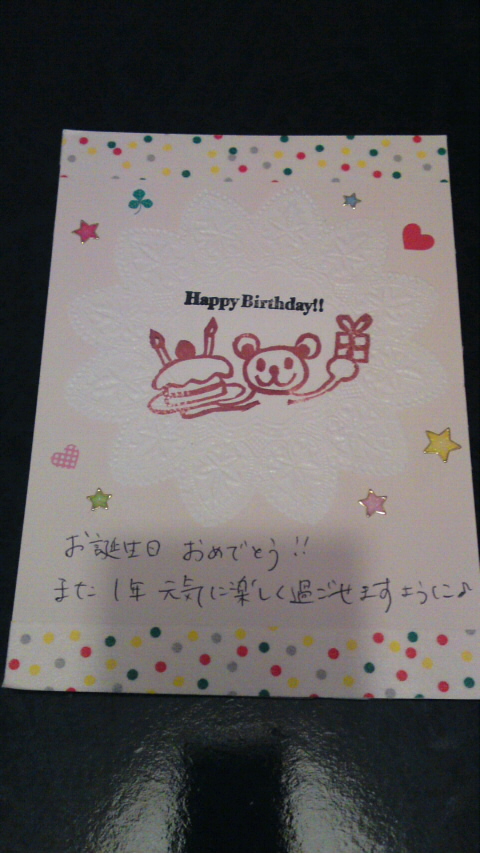 Happy Birthday!!
お誕生日 おめでとう!!
また 1年 元気に楽しく過ごせますように♪